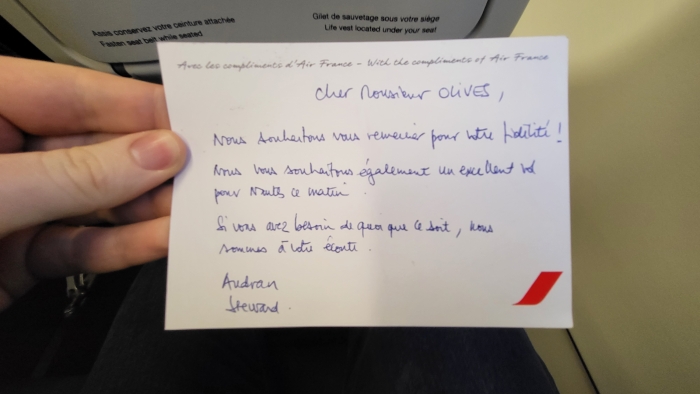 Assis conservez votre ceinture attachée
Fasten seat belt while seated
Gilet de sauvetage sous votre siège
Life vest located under your seat
Avec les compliments d'Air France - With the compliments of Air France
Cher Monsieur OLIVES,
Nous souhaitons vous remercier pour votre fidélité !
Nous vous souhaitons également un excellent vol
pour Nantes ce matin.
Si vous avez besoin de quoi que ce soit, nous
sommes à votre écoute.
Audran
Steward.